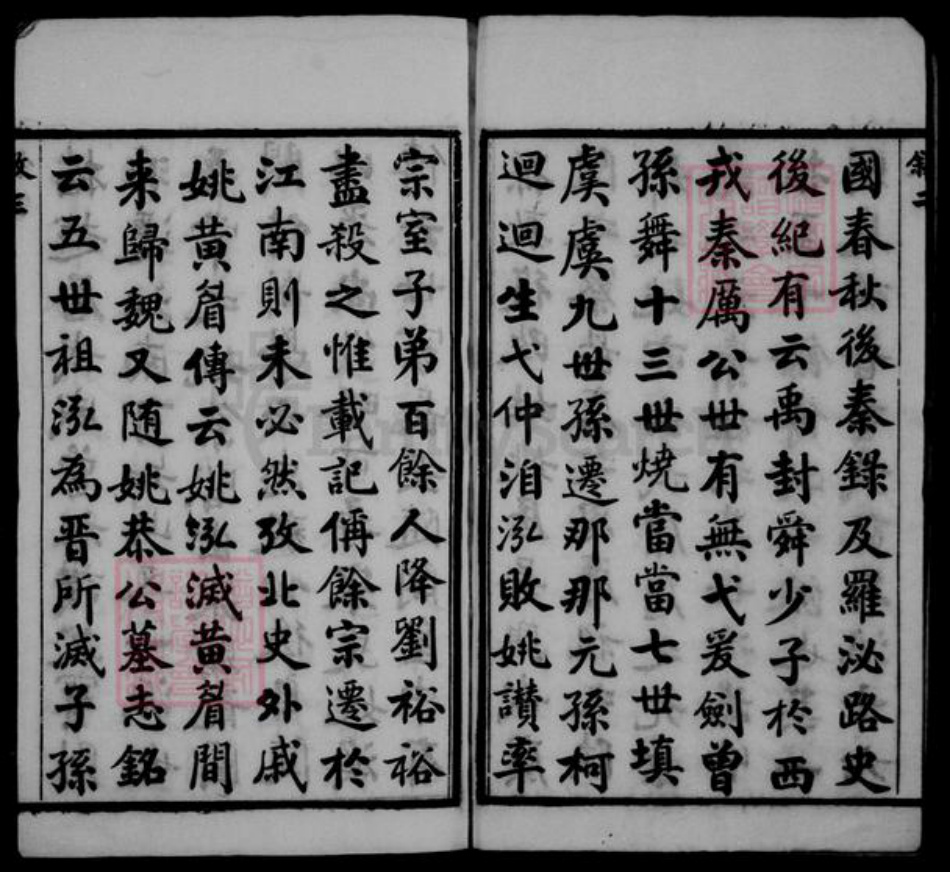 國春秋後秦錄及羅泌路史
後紀有云禹封舜少子於西
戎秦厲公世有無弋爰劍曾
孫舞十三世燒當當七世填
虞虞九世孫遷那那元孫柯
迴迴生弋仲洎泓敗姚讃率
宗室子弟百餘人降劉裕裕
盡殺之惟載記偁餘宗遷於
江南則未必然攷北史外戚
姚黃眉傳云姚泓滅黃眉間
来歸魏又随姚恭公墓志銘
云五世祖泓為晋所滅子孫